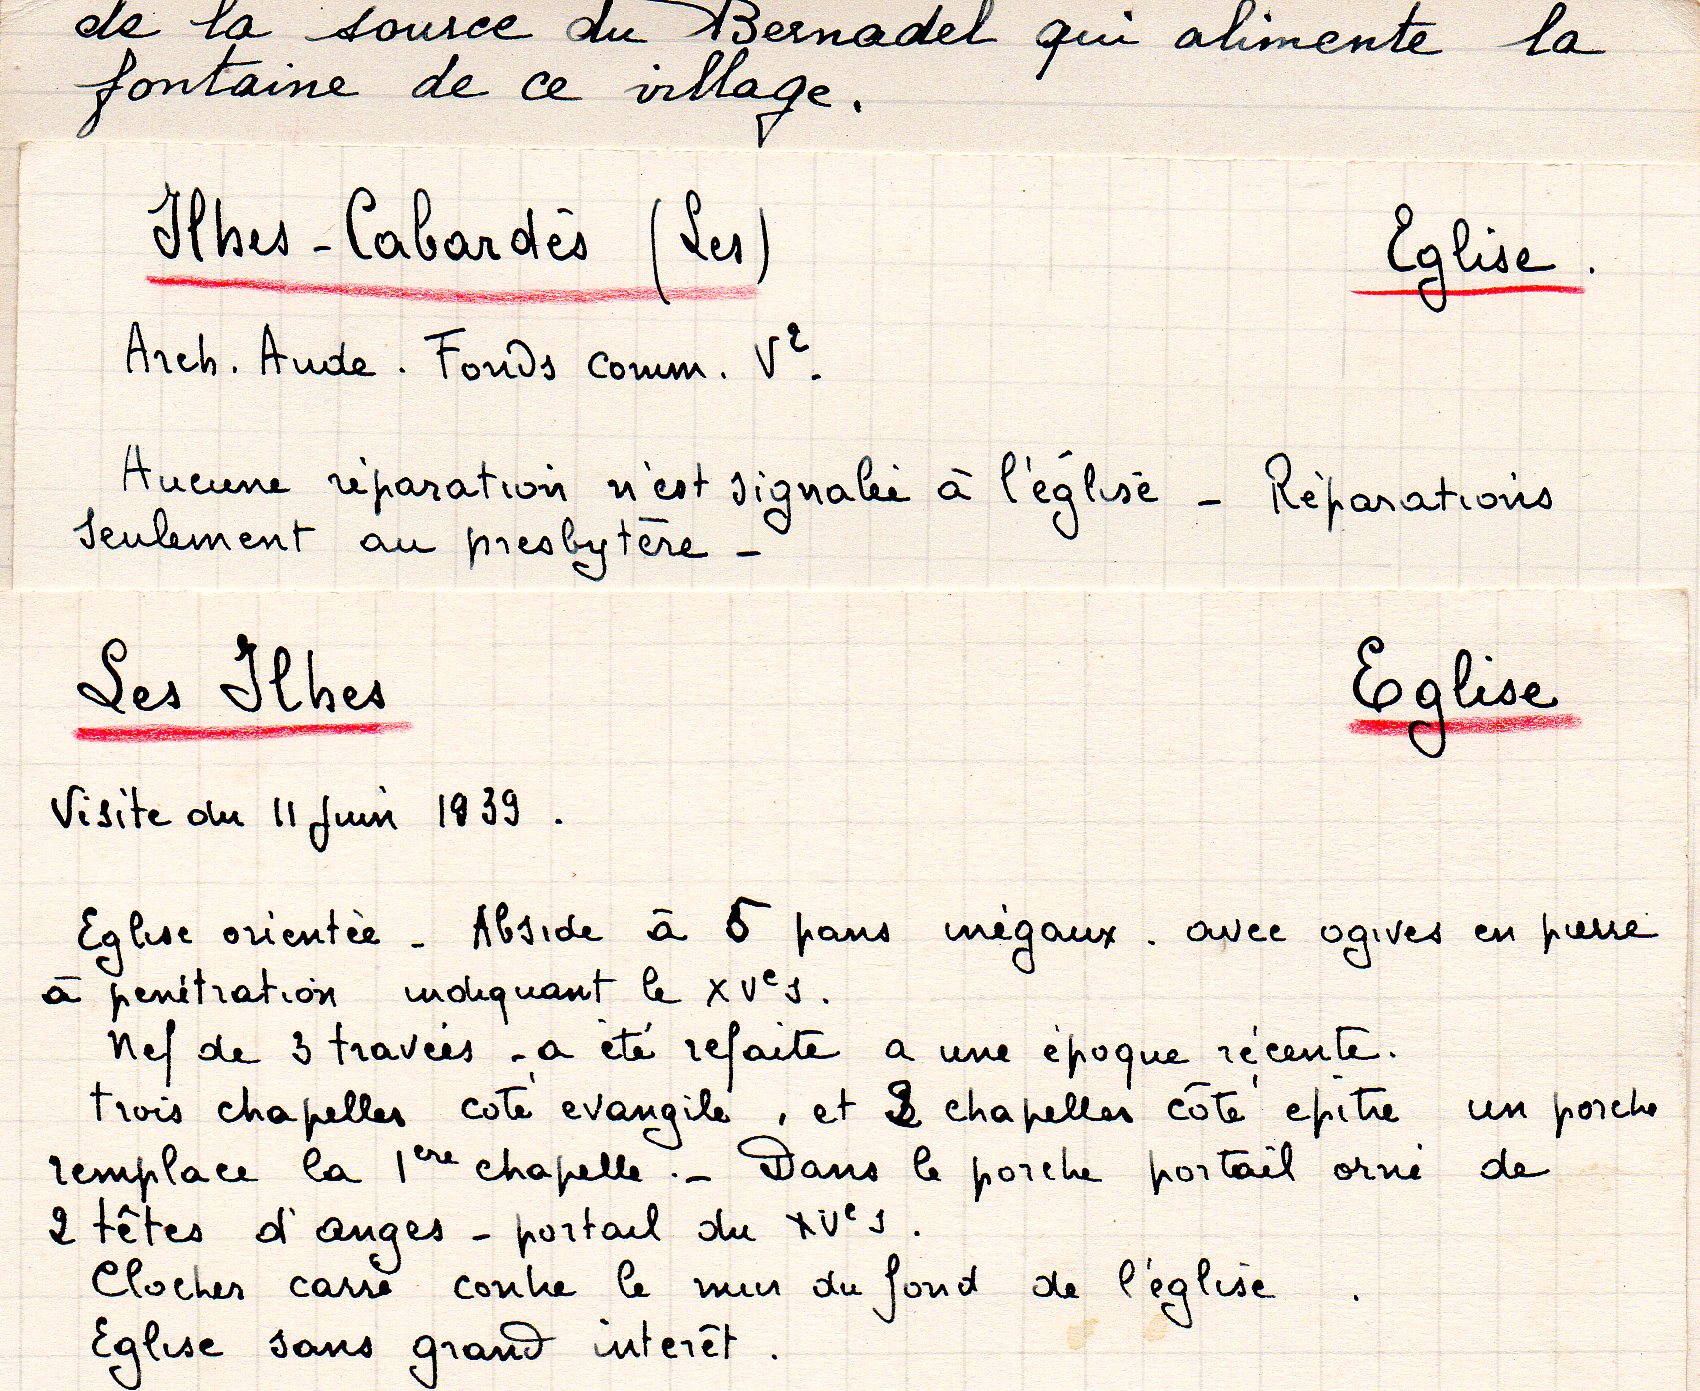 de la source du Bernadel qui alimente la
fontaine de ce village.
Ilhes-Cabardès (Les) Eglise.
Arch. Aude. Fonds comm. V².
Aucune réparation n'est signalée à l'église - Réparations
seulement au presbytère -
Les Ilhes Eglise
Visite du 11 Juin 1939.
Eglise orientée - Abside à 5 pans inégaux. avec ogives en pierre
à penétration indiquant le XVe s.
Nef de 3 travées - a été refaite a une époque récente.
trois chapelles coté evangile, et 2 chapelles côté epitre un porche
remplace la 1ere chapelle. - Dans le porche portail orné de
2 têtes d'anges - portail du XVe s.
Clocher carré contre le mur du fond de l'église.
Eglise sans grand interêt.